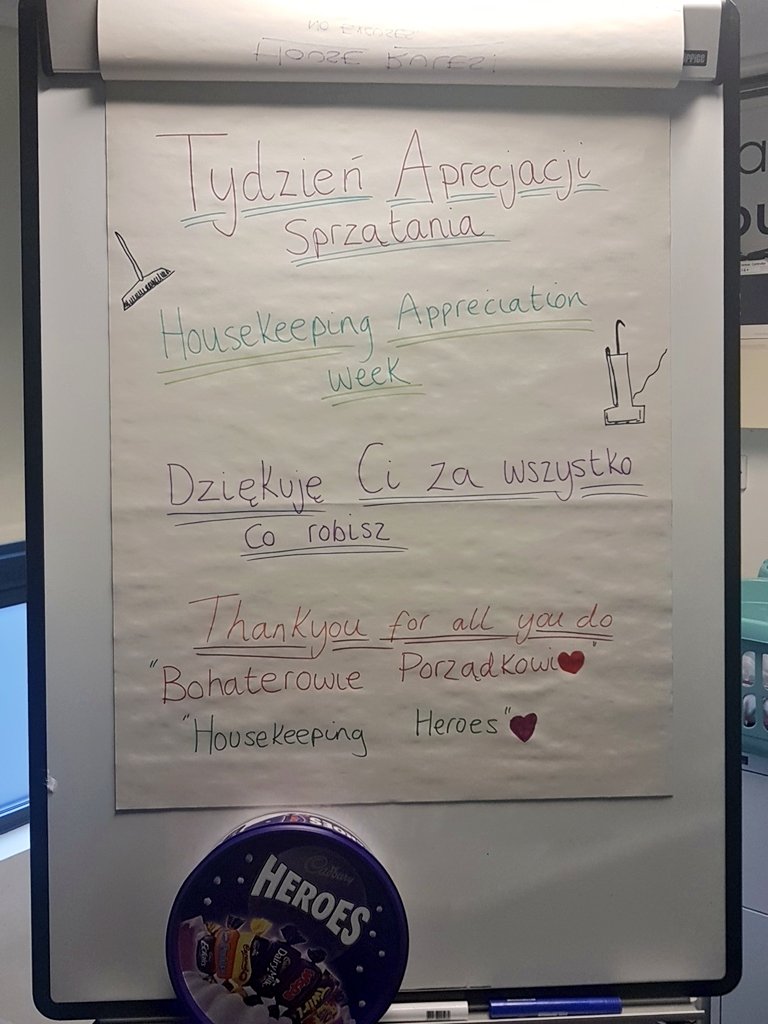 Tydzień Aprecjacji
Sprzątania
Housekeeping Appreciation
week
Dziękuję Ci za wszystko
co robisz
Thankyou for all you do
"Bohaterowie Porządkowi"
"Housekeeping Heroes"
Cadbury
HEROES
Dairy Milk
Twirl